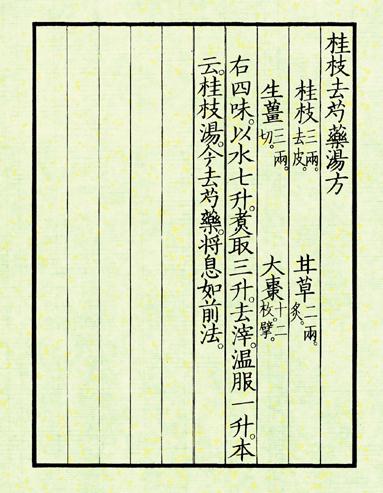 桂枝去芍藥湯方
桂枝三兩。去皮。 甘草二兩。炙。
生薑三兩。切。 大棗十二枚。擘。
右四味。以水七升。煑取三升。去滓。温服一升。本
云。桂枝湯。今去芍藥。将息如前法。